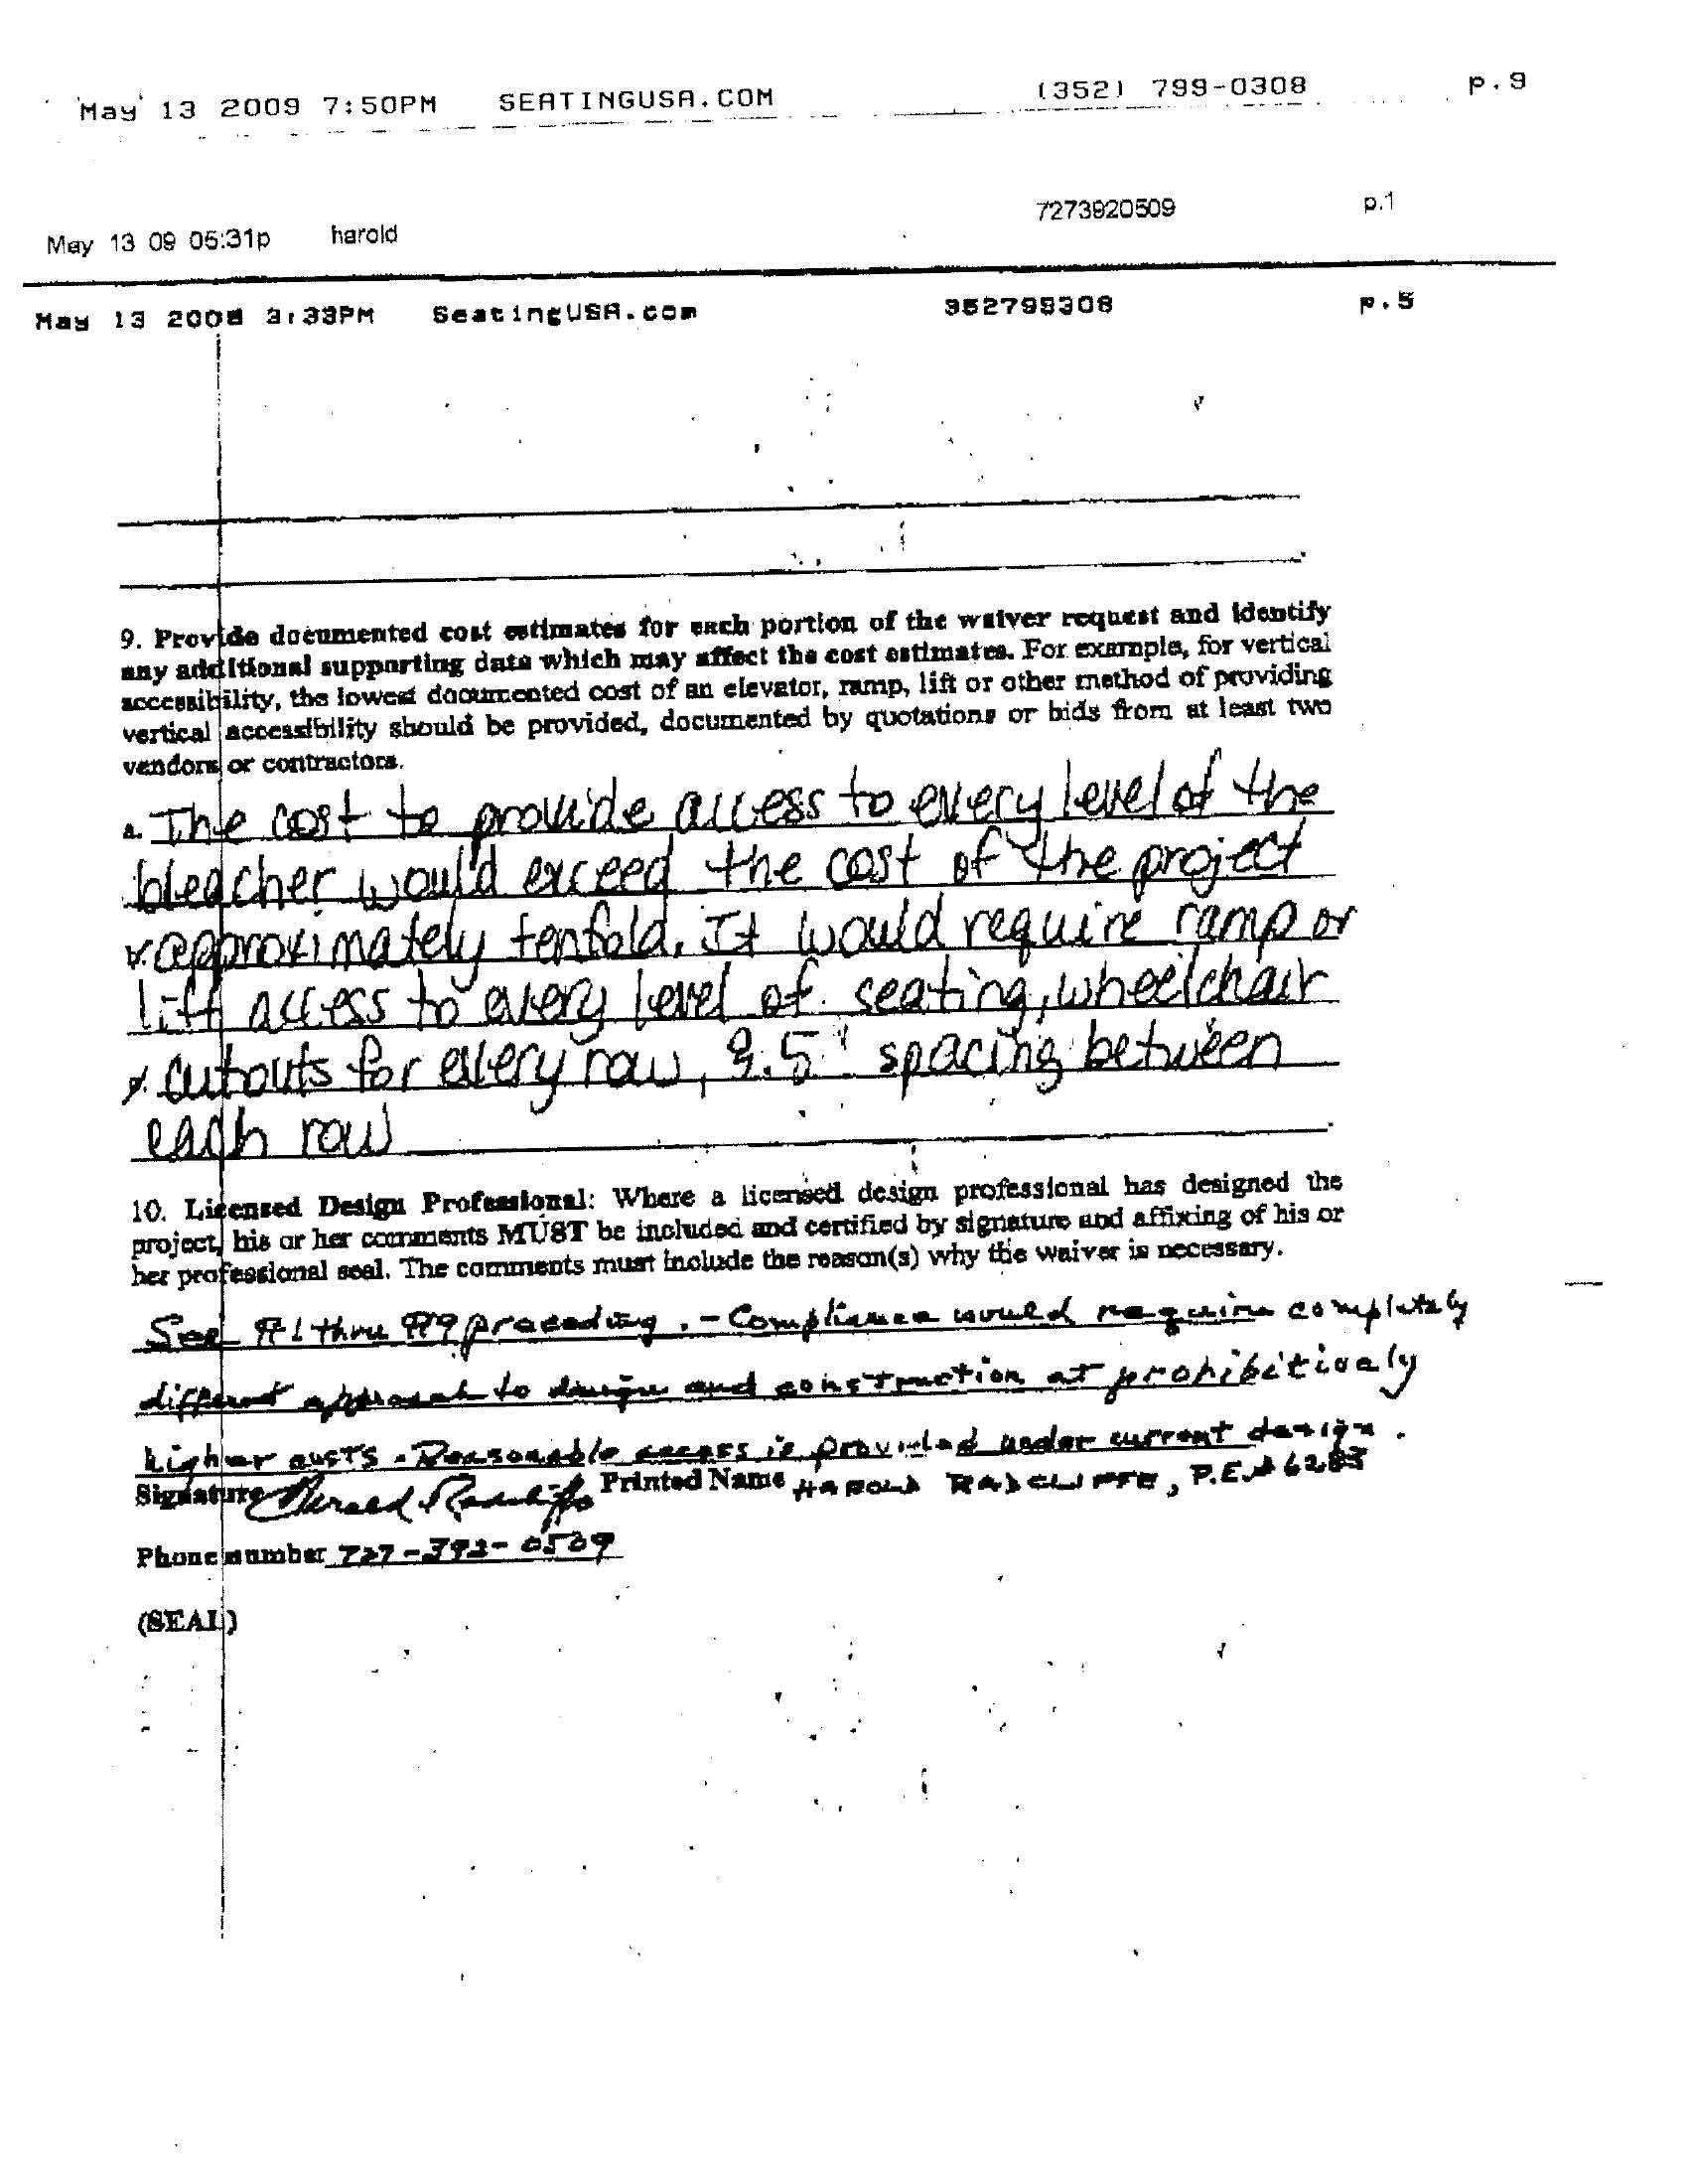 May 13 2009 7:50PM SEATINGUSA.COM (352) 799-0308 p.9
May 13 09 05:31p harold 7273920509 p.1
May 13 2008 3:33PM SeatingUSA.com 352799308 p.5
9. Provide documented cost estimates for each portion of the waiver request and identify
any additional supporting data which may affect the cost estimates. For example, for vertical
accessibility, the lowest documented cost of an elevator, ramp, lift or other method of providing
vertical accessibility should be provided, documented by quotations or bids from at least two
vendors or contractors.
a. The cost to provide access to every level of the
bleacher would exceed the cost of the project
approximately tenfold. It would require ramp or
lift access to every level of seating, wheelchair
cutouts for every row, spacing between
each row
10. Licensed Design Professional: Where a licensed design professional has designed the
project, his or her comments MUST be included and certified by signature and affixing of his or
her professional seal. The comments must include the reason(s) why the waiver is necessary.
See #1 thru #9 preceding. - Compliance would require completely
different approach to design and construction at prohibitively
higher costs. Reasonable access is provided under current design.
Signature Harold Radcliffe Printed Name HAROLD RADCLIFFE, P.E.# 6283
Phone number 727-392-0509
(SEAL)